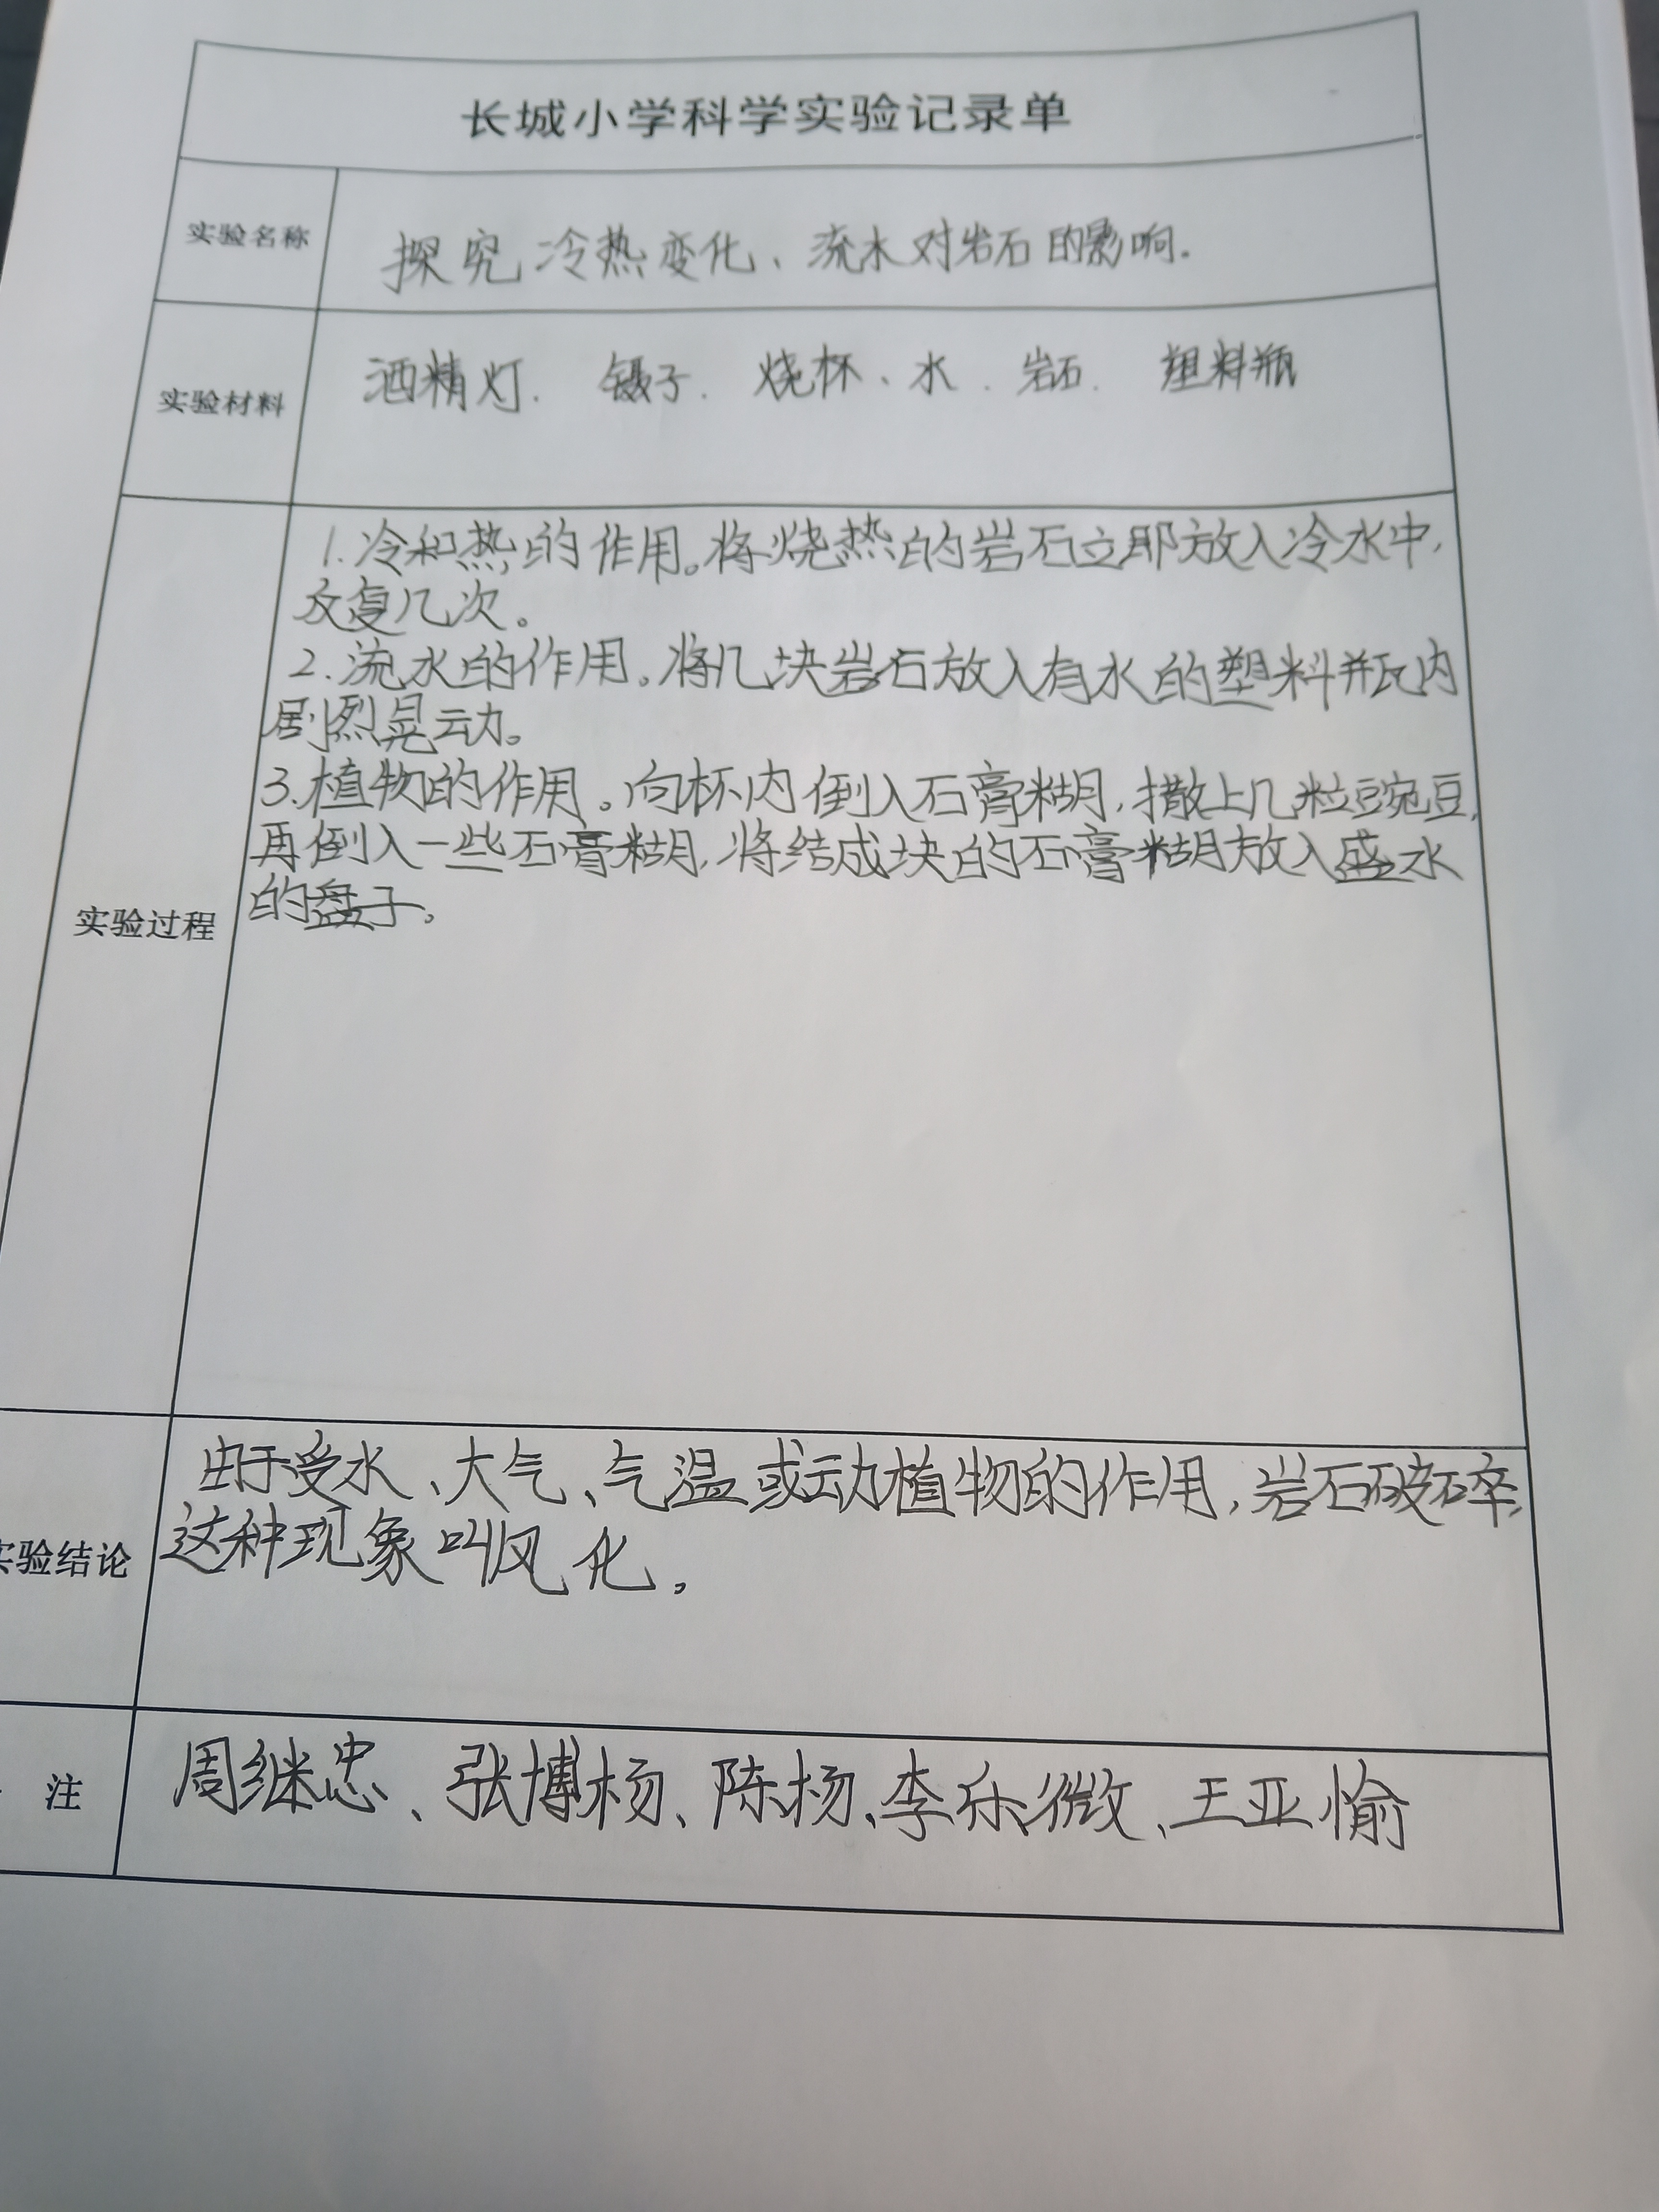 长城小学科学实验记录单
实验名称
探究冷热变化、流水对岩石的影响.
实验材料
酒精灯. 镊子. 烧杯、水. 岩石. 塑料瓶
实验过程
1.冷和热的作用。将烧热的岩石立即放入冷水中,
反复几次。
2.流水的作用。将几块岩石放入有水的塑料瓶内
剧烈晃动。
3.植物的作用。向杯内倒入石膏糊,撒上几粒豌豆,
再倒入一些石膏糊,将结成块的石膏糊放入盛水
的盘子。
实验结论
由于受水、大气、气温或动植物的作用,岩石破碎,
这种现象叫风化。
注
周继忠、张博杨、陈杨、李乐微、王亚愉